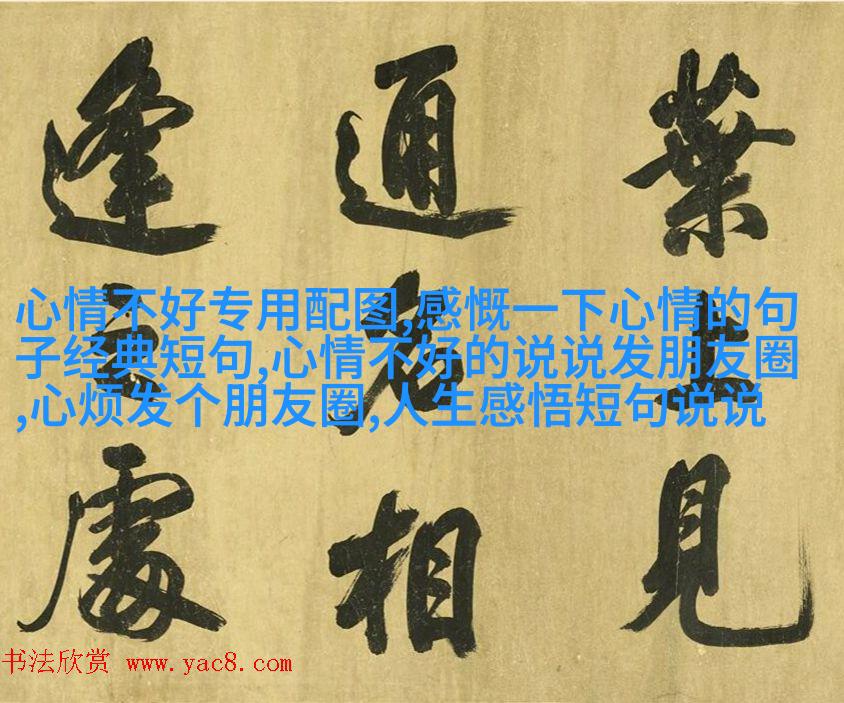 葉上見
通名相
逢處
心情不好专用配图,感慨一下心情的句
子经典短句,心情不好的说说发朋友圈
,心烦发个朋友圈,人生感悟短句说说
书法欣赏 www.yac8.com